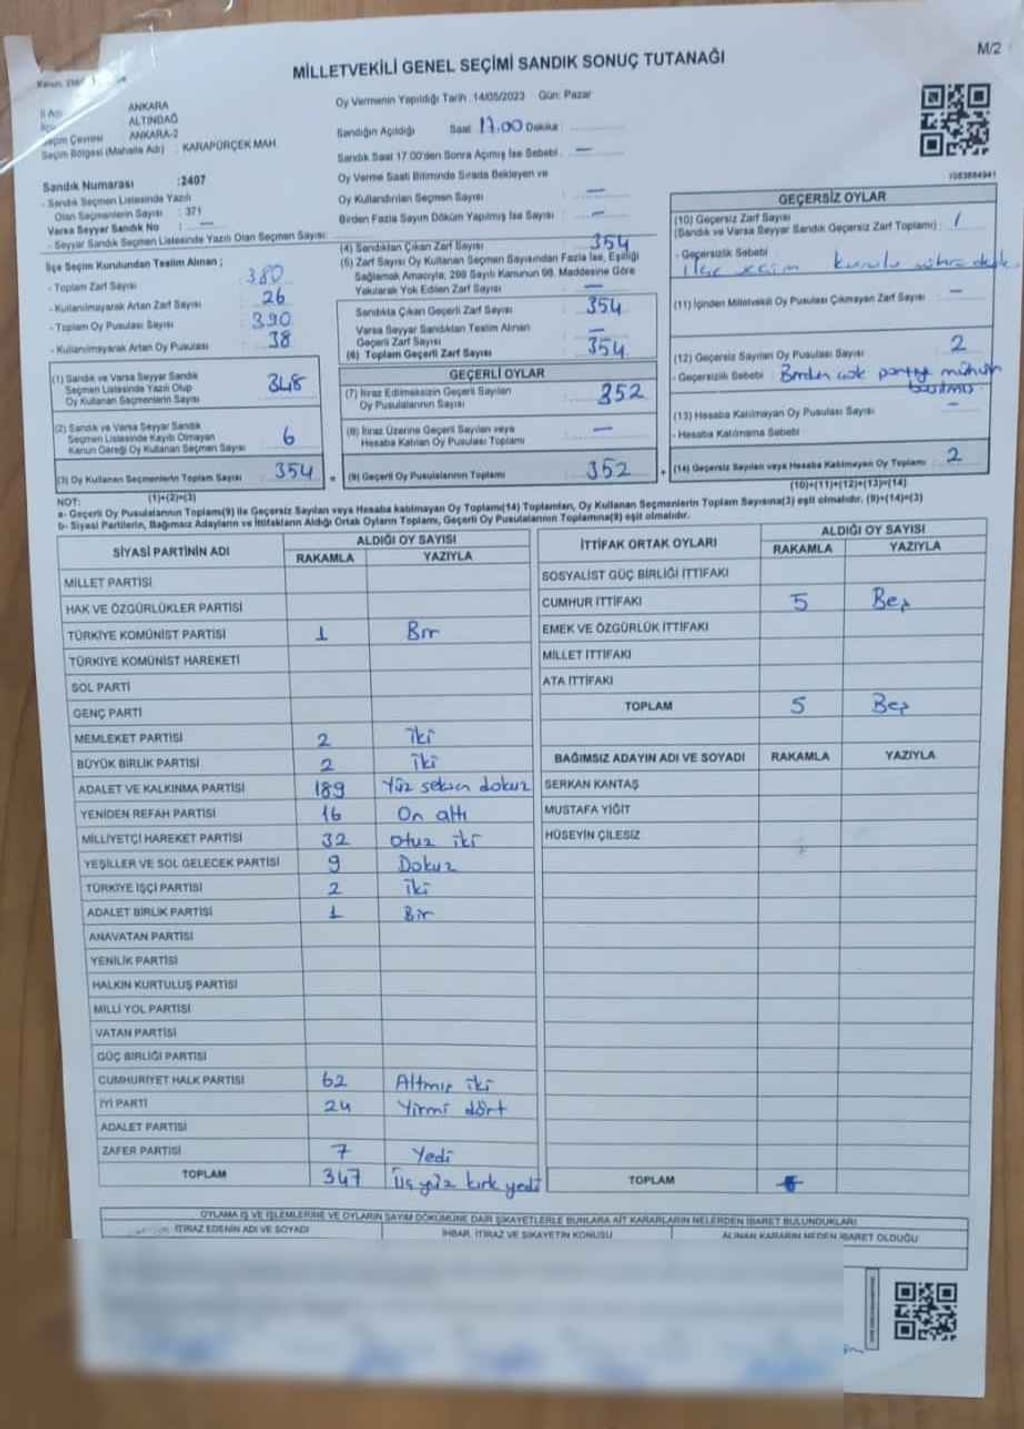 M/2
MİLLETVEKİLİ GENEL SEÇİMİ SANDIK SONUÇ TUTANAĞI
İl Adı ANKARA
İlçe ALTINDAĞ
Seçim Çevresi ANKARA-2
Seçim Bölgesi (Mahalle Adı) : KARAPÜRÇEK MAH.
Oy Vermenin Yapıldığı Tarih :14/05/2023 Gün: Pazar
Sandığın Açıldığı Saat 17.00 Dakika :
Sandık Saat 17.00'den Sonra Açımış İse Sebebi : —
Oy Verme Saati Bitiminde Sırada Bekleyen ve
Oy Kullandırılan Seçmen Sayısı : —
Birden Fazla Sayım Döküm Yapılmış İse Sayısı : —
1083884941
Sandık Numarası :2407
- Sandık Seçmen Listesinde Yazılı
Olan Seçmenlerin Sayısı : 371
Varsa Seyyar Sandık No : —
- Seyyar Sandık Seçmen Listesinde Yazılı Olan Seçmen Sayısı:
İlçe Seçim Kurulundan Teslim Alınan ;
- Toplam Zarf Sayısı : 380
- Kullanılmayarak Artan Zarf Sayısı : 26
- Toplam Oy Pusulası Sayısı : 390
- Kullanılmayarak Artan Oy Pusulası : 38
(1) Sandık ve Varsa Seyyar Sandık
Seçmen Listesinde Yazılı Olup
Oy Kullanan Seçmenlerin Sayısı : 348
(2) Sandık ve Varsa Seyyar Sandık
Seçmen Listesinde Kayıtlı Olmayan
Kanun Gereği Oy Kullanan Seçmen Sayısı : 6
(3) Oy Kullanan Seçmenlerin Toplam Sayısı : 354
(1)+(2)=(3)
(4) Sandıktan Çıkan Zarf Sayısı : 354
(5) Zarf Sayısı Oy Kullanan Seçmen Sayısından Fazla İse, Eşitliği
Sağlamak Amacıyla, 298 Sayılı Kanunun 98. Maddesine Göre
Yakılarak Yok Edilen Zarf Sayısı : —
Sandıkta Çıkan Geçerli Zarf Sayısı : 354
Varsa Seyyar Sandıktan Teslim Alınan
Geçerli Zarf Sayısı : —
(6) Toplam Geçerli Zarf Sayısı : 354
GEÇERLİ OYLAR
(7) İtiraz Edilmeksizin Geçerli Sayılan
Oy Pusulalarının Sayısı : 352
(8) İtiraz Üzerine Geçerli Sayılan veya
Hesaba Katılan Oy Pusulası Toplamı : —
= (9) Geçerli Oy Pusulalarının Toplamı : 352 +
GEÇERSİZ OYLAR
(10) Geçersiz Zarf Sayısı
(Sandık ve Varsa Seyyar Sandık Geçersiz Zarf Toplamı) : 1
- Geçersizlik Sebebi : ilçe seçim kurulu
(11) İçinden Milletvekili Oy Pusulası Çıkmayan Zarf Sayısı : —
(12) Geçersiz Sayılan Oy Pusulası Sayısı : 2
- Geçersizlik Sebebi : Birden çok partiye mühür
basılmış
(13) Hesaba Katılmayan Oy Pusulası Sayısı : —
- Hesaba Katılmama Sebebi
(14) Geçersiz Sayılan veya Hesaba Katılmayan Oy Toplamı : 2
(10)+(11)+(12)+(13)=(14)
NOT:
a- Geçerli Oy Pusulalarının Toplamı(9) ile Geçersiz Sayılan veya Hesaba katılmayan Oy Toplamı(14) Toplamları, Oy Kullanan Seçmenlerin Toplam Sayısına(3) eşit olmalıdır. (9)+(14)=(3)
b- Siyasi Partilerin, Bağımsız Adayların ve İttifakların Aldığı Ortak Oyların Toplamı, Geçerli Oy Pusulalarının Toplamına(9) eşit olmalıdır.
SİYASİ PARTİNİN ADI ALDIĞI OY SAYISI
RAKAMLA YAZIYLA
MİLLET PARTİSİ
HAK VE ÖZGÜRLÜKLER PARTİSİ
TÜRKİYE KOMÜNİST PARTİSİ 1 Bir
TÜRKİYE KOMÜNİST HAREKETİ
SOL PARTİ
GENÇ PARTİ
MEMLEKET PARTİSİ 2 İki
BÜYÜK BİRLİK PARTİSİ 2 İki
ADALET VE KALKINMA PARTİSİ 189 Yüz seksen dokuz
YENİDEN REFAH PARTİSİ 16 On altı
MİLLİYETÇİ HAREKET PARTİSİ 32 Otuz iki
YEŞİLLER VE SOL GELECEK PARTİSİ 9 Dokuz
TÜRKİYE İŞÇİ PARTİSİ 2 iki
ADALET BİRLİK PARTİSİ 1 Bir
ANAVATAN PARTİSİ
YENİLİK PARTİSİ
HALKIN KURTULUŞ PARTİSİ
MİLLİ YOL PARTİSİ
VATAN PARTİSİ
GÜÇ BİRLİĞİ PARTİSİ
CUMHURİYET HALK PARTİSİ 62 Altmış iki
İYİ PARTİ 24 Yirmi dört
ADALET PARTİSİ
ZAFER PARTİSİ 7 Yedi
TOPLAM 347 Üç yüz kırk yedi
İTTİFAK ORTAK OYLARI ALDIĞI OY SAYISI
RAKAMLA YAZIYLA
SOSYALİST GÜÇ BİRLİĞİ İTTİFAKI
CUMHUR İTTİFAKI 5 Beş
EMEK VE ÖZGÜRLÜK İTTİFAKI
MİLLET İTTİFAKI
ATA İTTİFAKI
TOPLAM 5 Beş
BAĞIMSIZ ADAYIN ADI VE SOYADI RAKAMLA YAZIYLA
SERKAN KANTAŞ
MUSTAFA YİĞİT
HÜSEYİN ÇİLESİZ
TOPLAM
OYLAMA İŞ VE İŞLEMLERİNE VE OYLARIN SAYIM DÖKÜMÜNE DAİR ŞİKAYETLERLE BUNLARA AİT KARARLARIN NELERDEN İBARET BULUNDUKLARI
İTİRAZ EDENİN ADI VE SOYADI İHBAR, İTİRAZ VE ŞİKAYETİN KONUSU ALINAN KARARIN NEDEN İBARET OLDUĞU